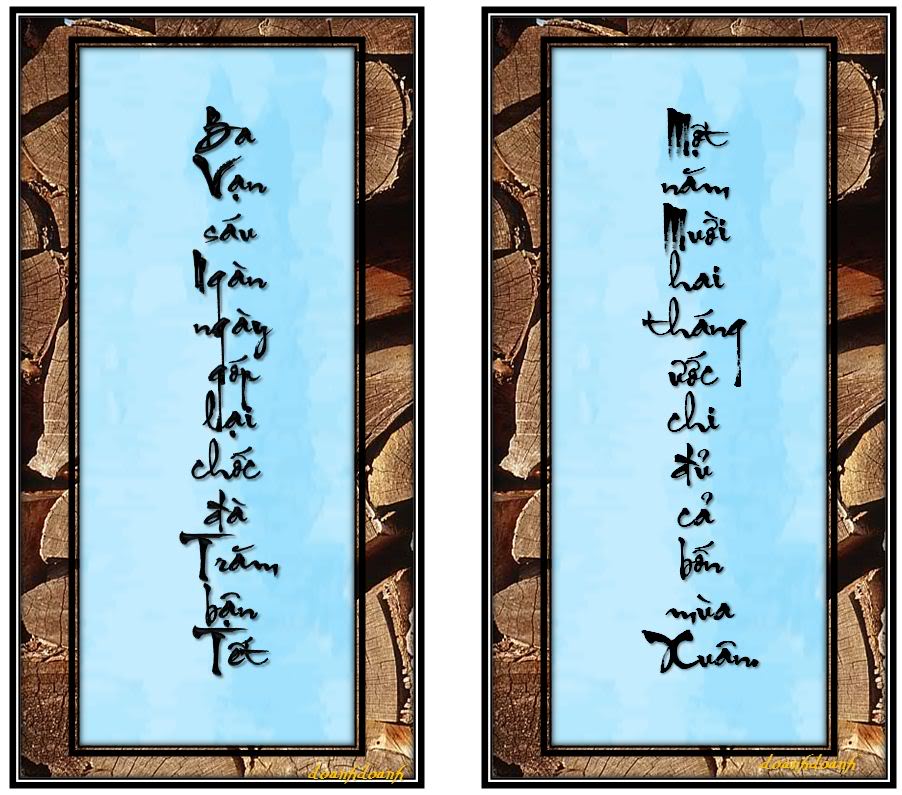 Ba
Vạn
sáu
Ngàn
ngày
góp
lại
chốc
đà
Trăm
bận
Tết
doanhdoanh
Một
năm
Mười
hai
tháng
ước
chi
đủ
cả
bốn
mùa
Xuân.
doanhdoanh